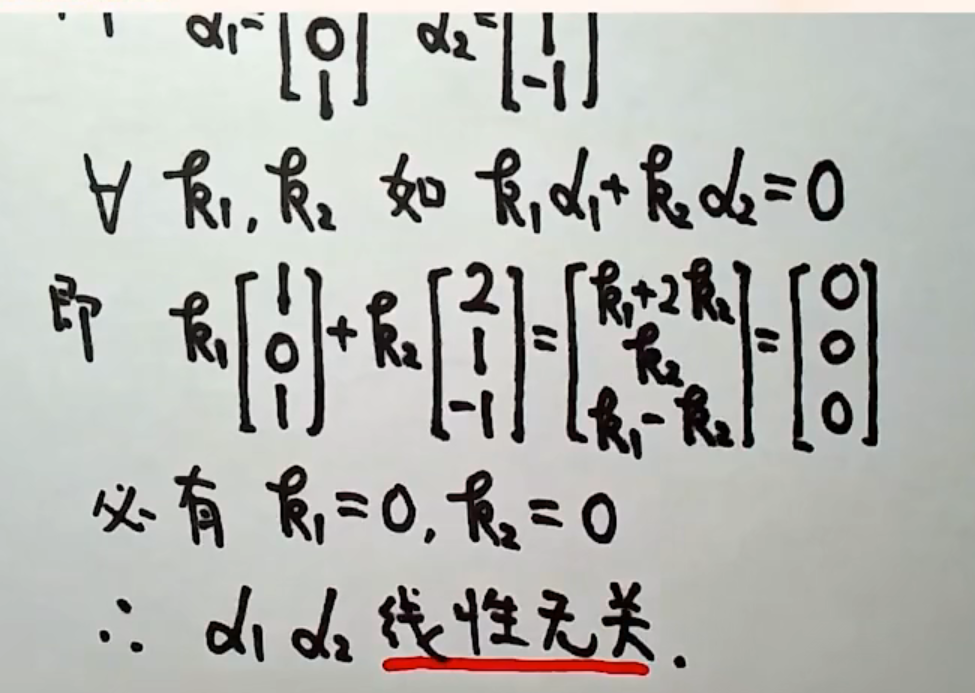 α₁=[0 1] α₂=[1 -1]
∀ k₁, k₂ 如 k₁α₁+k₂α₂=0
即 k₁[1 0 1]+k₂[2 1 -1]=[k₁+2k₂ k₂ k₁-k₂]=[0 0 0]
必有 k₁=0, k₂=0
∴ α₁ α₂ 线性无关.